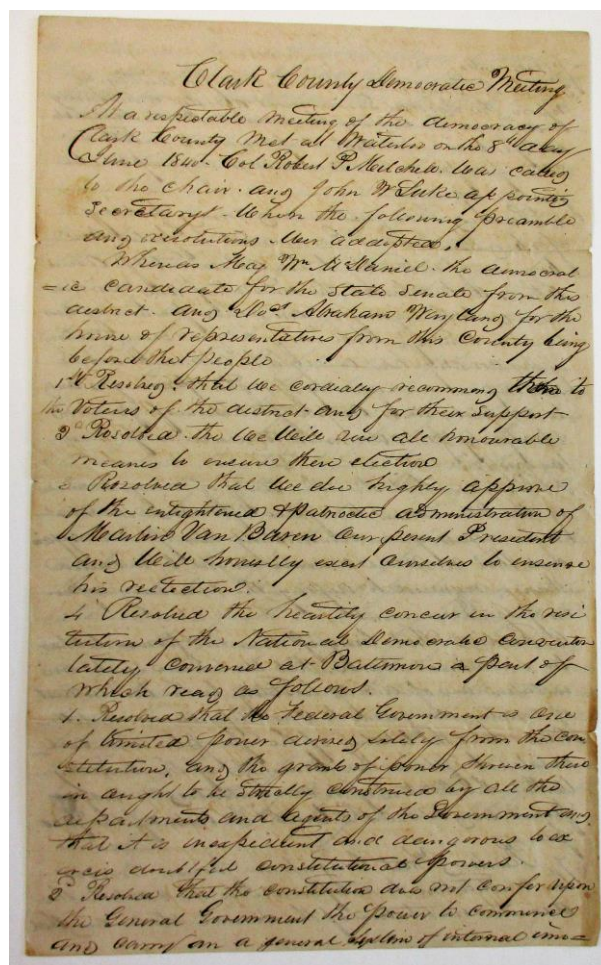 Clark County Democratic Meeting
At a respectable meeting of the democracy of
Clark County met at Waterloo on the 8th day
June 1840. Col Robert P. Mitchell. was called
to the chair. and John W Luke appointed
Secretary. When the following preamble
and resolutions wer addopted.
Whereas Maj Wm McDaniel. the democrat
=ic candidate for the State Senate from this
district. and Abraham Wayland for the
house of representatives from this County being
before the people
1st Resolved that we cordially recommend them to
the Voters of the district and for their support
2d Resolved. the we will use all honourable
means to ensure there election
3 Resolved that we doe highly approve
of the enlightened & patriotic administration of
Martin Van Buren our present President
and will honestly exert ourselves to ensure
his reelection.
4 Resolved the heartily concur in the resi
lution of the National Democratic Convention
lately convened at Baltimore a part of
which read as follows.
1. Resolved that the Federal Government is one
of limited power derived solely from the con
stitution, and the grants of power therein
in aught to be strictly construed by all the
departments and agents of the Government and
that it is inexpedient and dangerous to ex
ercis doubtful constitutional powers.
2d Resolved that the constitution does not confer upon
the General Government the power to commence
and carry on a general system of internal imp=